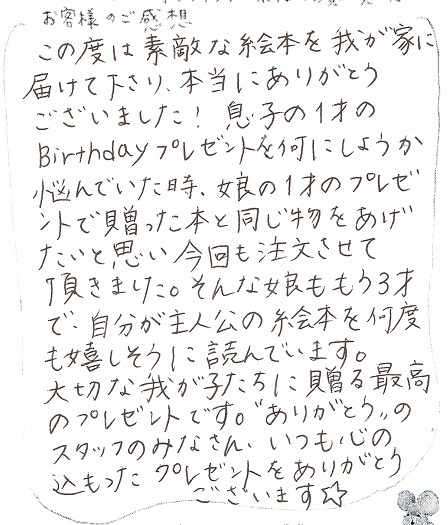 お客様のご感想
この度は素敵な絵本を我が家に
届けて下さり、本当にありがとう
ございました！息子の1才の
Birthdayプレゼントを何にしようか
悩んでいた時、娘の1才のプレゼ
ントで贈った本と同じ物をあげ
たいと思い今回も注文させて
頂きました。そんな娘ももう3才
で、自分が主人公の絵本を何度
も嬉しそうに読んでいます。
大切な我が子たちに贈る最高
のプレゼントです。“ありがとう„の
スタッフのみなさん、いつも心の
込もったプレゼントをありがとう
ございます☆